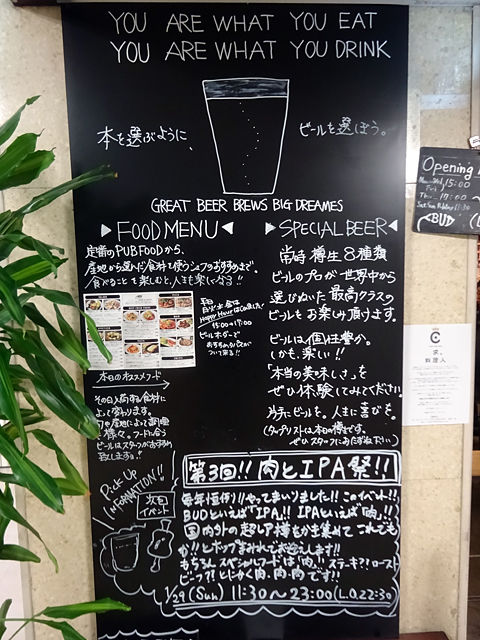 YOU ARE WHAT YOU EAT
YOU ARE WHAT YOU DRINK
本を選ぶように、
ビールを選ぼう。
GREAT BEER BREWS BIG DREAMES
▶FOOD MENU◀
定番のPUB FOODから、
産地から選んだ食材を使うシェフのおすすめまで。
食べることを楽しむと、人生も楽しくなる!!
Happy Hour
15:00〜17:00
本日のオススメフード
その日入荷する食材に
よって変わります。
ビールはスタッフがおすすめ
致します。
▶SPECIAL BEER◀
常時 樽生 8種類
ビールのプロが世界中から
選びぬいた最高クラスの
ビールをお楽しみ頂けます。
ビールは個性豊か。
しかも、楽しい!!
「本当の美味しさ」を
ぜひ体験してみてください。
片手にビールを。人生に喜びを。
(タップリストは本日の樽です。
ぜひスタッフにおたずね下さい)
Pick Up
INFORMATION!!
次回
イベント
第3回!! 肉とIPA祭!!
毎年恒例!!やってまいりました!!このイベント!!
BUDといえば「IPA」!! IPAといえば「肉」!!
国内外の超レア樽をかき集めてこれでも
か!!とホップまみれでお迎えします!!
もちろんスペシャルフードは「肉」!! ステーキ?! ロースト
ビーフ?! とにかく肉・肉・肉です!!
1/29 (Sun) 11:30〜23:00 (L.O.22:30)
Opening
15:00
17:00
11:30
BUD
料理人